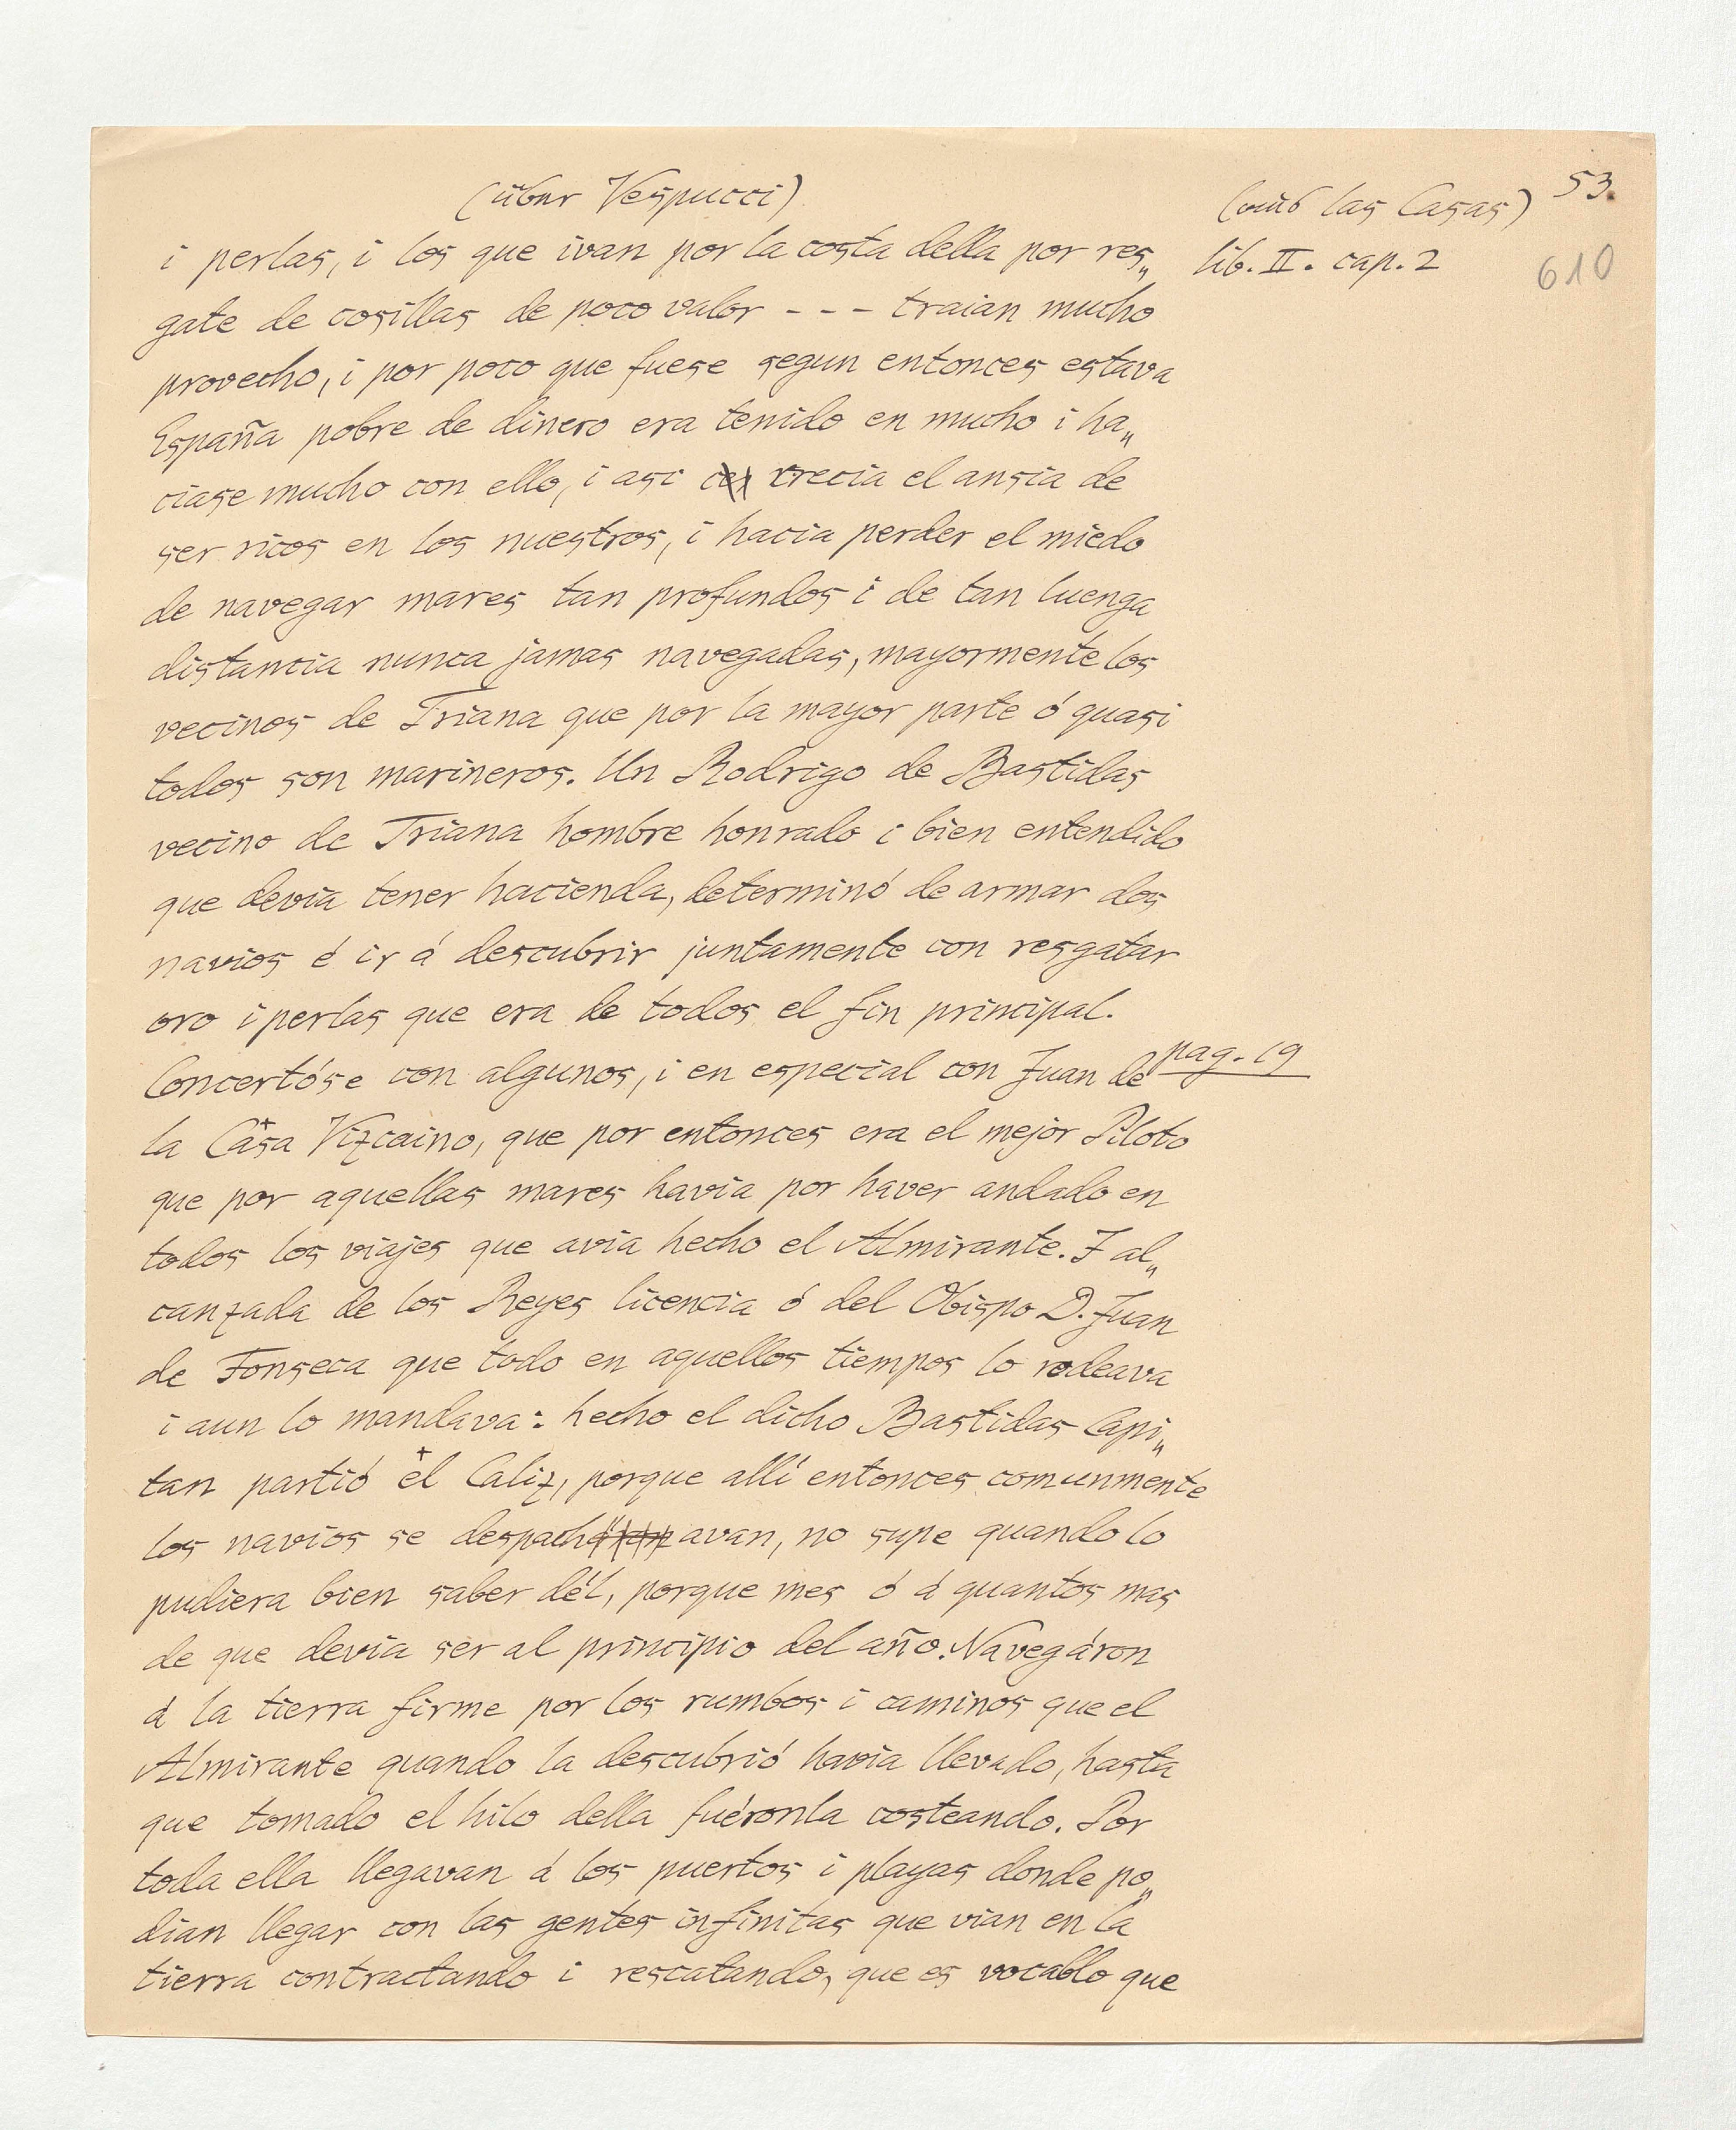 (über Vespucci)
(aus las Casas)
53.
lib. II. cap. 2
610
i perlas, i los que ivan por la costa della por res„
gate de cosillas de poco valor - - - traian mucho
provecho, i por poco que fuese segun entonces estava
España pobre de dinero era tenido en mucho i ha„
ciase mucho con ello, i asi crecia el ansia de
ser ricos en los nuestros, i hacia perder el miedo
de navegar mares tan profundos i de tan luenga
distancia nunca jamas navegadas, mayormente los
vecinos de Triana que por la mayor parte ó quasi
todos son marineros. Un Rodrigo de Bastidas
vecino de Triana hombre honrado i bien entendido
que devia tener hacienda, determinó de armar dos
navios é ir á descubrir juntamente con resgatar
oro i perlas que era de todos el fin principal.
Concertóse con algunos, i en especial con Juan de
pag. 19
la Casa Vizcaino, que por entonces era el mejor Piloto
que por aquellas mares havia por haver andado en
todos los viajes que avia hecho el Almirante. I al„
canzada de los Reyes licencia ó del Obispo D. Juan
de Fonseca que todo en aquellos tiempos lo rodeava
i aun lo mandava: hecho el dicho Bastidas Capi„
tan partió el Caliz, porque allí entonces comunmente
los navios se despachavan, no supe quando lo
pudiera bien saber dél, porque mes ó á quantos mas
de que devia ser al principio del año. Navegáron
á la tierra firme por los rumbos i caminos que el
Almirante quando la descubrió havia llevado, hasta
que tomado el hilo della fuéronla costeando. Por
toda ella llegavan á los puertos i playas donde po„
dian llegar con las gentes infinitas que vian en la
tierra contractando i rescatando, que es vocablo que